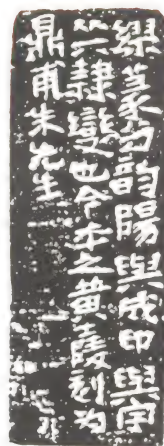 繆篆勻韵陽與成印與宋
竺隸變也今本之黃霞刻为
鼎甫朱先生